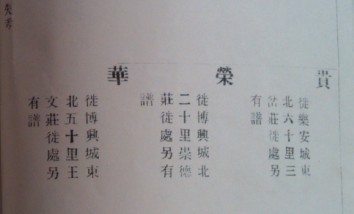 貴
徙樂安城東
北六十里三
岔莊徙處另
有譜
榮
徙博興城北
二十里崇德
莊徙處另有
譜
華
徙博興城東
北五十里王
文莊徙處另
有譜